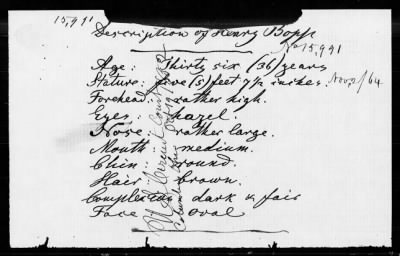 15,991
Description of Henry Bopp
No 15,991
Age: Thirty six (36) years
Stature: five (5) feet 7½ inches. Nov 2/64
Forehead: rather high.
Eyes: hazel.
Nose: rather large.
Mouth: medium.
Chin: round.
Hair: brown.
Complexion: dark & fair
Face: oval
U.S. Circuit Court